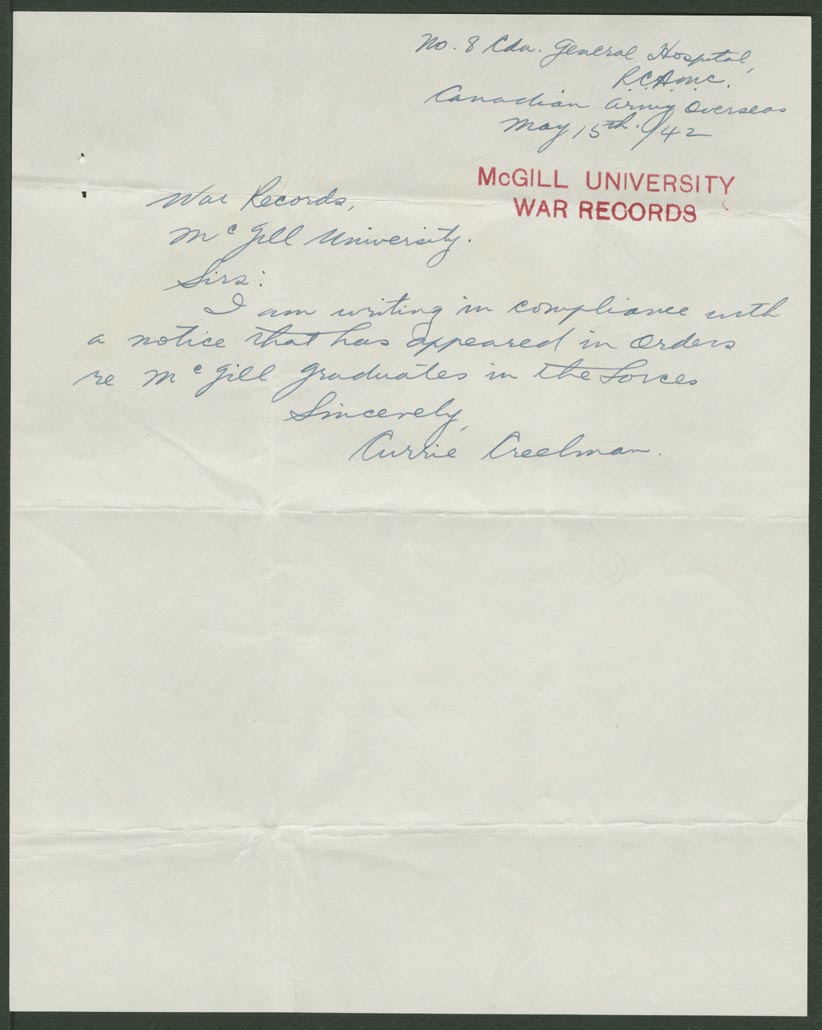 No. 8 Cdn. General Hospital,
R.C.A.M.C.
Canadian Army Overseas
May 15th. /42
McGILL UNIVERSITY
WAR RECORDS
War Records,
Mc Gill University.
Sirs:
I am writing in compliance with
a notice that has appeared in Orders
re Mc Gill graduates in the Forces
Sincerely,
Currie Creelman.